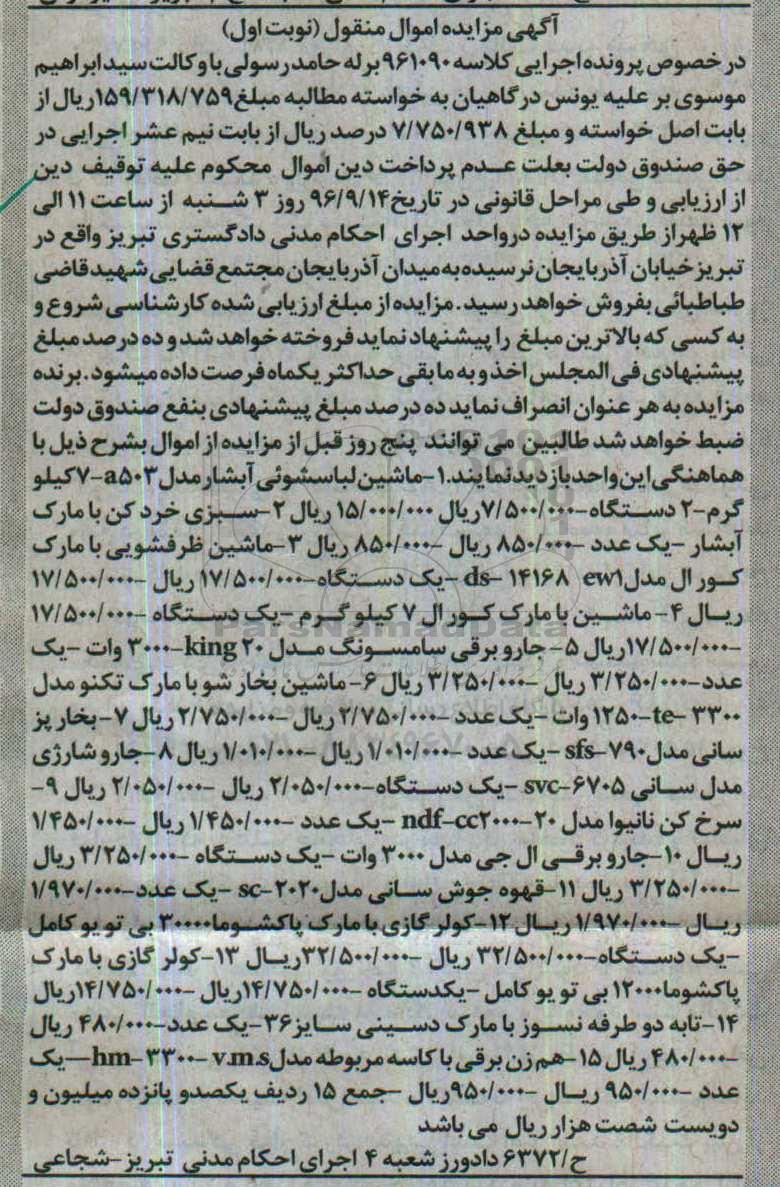 آگهی مزایده اموال منقول (نوبت اول)
در خصوص پرونده اجرایی کلاسه ۹۶۱۰۹۰ برله حامد رسولی با وکالت سید ابراهیم
موسوی بر علیه یونس درگاهیان به خواسته مطالبه مبلغ ۱۵۹/۳۱۸/۷۵۹ ریال از
بابت اصل خواسته و مبلغ ۷/۷۵۰/۹۳۸ درصد ریال از بابت نیم عشر اجرایی در
حق صندوق دولت بعلت عدم پرداخت دین اموال محکوم علیه توقیف دین
از ارزیابی و طی مراحل قانونی در تاریخ ۹۶/۹/۱۴ روز ۳ شنبه از ساعت ۱۱ الی
۱۲ ظهر از طریق مزایده در واحد اجرای احکام مدنی دادگستری تبریز واقع در
تبریز خیابان آذربایجان نرسیده به میدان آذربایجان مجتمع قضایی شهید قاضی
طباطبائی بفروش خواهد رسید. مزایده از مبلغ ارزیابی شده کارشناسی شروع و
به کسی که بالاترین مبلغ را پیشنهاد نماید فروخته خواهد شد و ده درصد مبلغ
پیشنهادی فی المجلس اخذ و به مابقی حداکثر یکماه فرصت داده میشود. برنده
مزایده به هر عنوان انصراف نماید ده درصد مبلغ پیشنهادی بنفع صندوق دولت
ضبط خواهد شد طالبین می توانند پنج روز قبل از مزایده از اموال بشرح ذیل با
هماهنگی این واحد بازدید نمایند. ۱-ماشین لباسشوئی آبشار مدل a۵۰۳-۷ کیلو
گرم-۲ دستگاه-۷/۵۰۰/۰۰۰ ریال ۱۵/۰۰۰/۰۰۰ ریال ۲-سبزی خرد کن با مارک
آبشار -یک عدد -۸۵۰/۰۰۰ ریال -۸۵۰/۰۰۰ ریال ۳-ماشین ظرفشویی با مارک
کور ال مدل ds- ۱۴۱۶۸ ew۱ -یک دستگاه-۱۷/۵۰۰/۰۰۰ ریال -۱۷/۵۰۰/۰۰۰
ریال ۴-ماشین با مارک کور ال ۷ کیلو گرم -یک دستگاه -۱۷/۵۰۰/۰۰۰
-۱۷/۵۰۰/۰۰۰ ریال ۵-جارو برقی سامسونگ مدل king ۲۰-۳۰۰۰ وات -یک
عدد-۳/۲۵۰/۰۰۰ ریال -۳/۲۵۰/۰۰۰ ریال ۶-ماشین بخار شو با مارک تکنو مدل
te- ۳۳۰۰-۱۲۵۰ وات -یک عدد -۲/۷۵۰/۰۰۰ ریال -۲/۷۵۰/۰۰۰ ریال ۷-بخار پز
سانی مدل sfs-۷۹۰ -یک عدد -۱/۰۱۰/۰۰۰ ریال -۱/۰۱۰/۰۰۰ ریال ۸-جارو شارژی
مدل سانی svc-۶۷۰۵ -یک دستگاه-۲/۰۵۰/۰۰۰ ریال -۲/۰۵۰/۰۰۰ ریال ۹-
سرخ کن نانیوا مدل ndf-cc۲۰۰۰-۲۰ -یک عدد -۱/۴۵۰/۰۰۰ ریال -۱/۴۵۰/۰۰۰
ریال ۱۰-جارو برقی ال جی مدل ۳۰۰۰ وات -یک دستگاه -۳/۲۵۰/۰۰۰ ریال
-۳/۲۵۰/۰۰۰ ریال ۱۱-قهوه جوش سانی مدل sc-۲۰۲۰ -یک عدد-۱/۹۷۰/۰۰۰
ریال -۱/۹۷۰/۰۰۰ ریال ۱۲-کولر گازی با مارک پاکشوما ۳۰۰۰۰ بی تو یو کامل
-یک دستگاه-۳۲/۵۰۰/۰۰۰ ریال -۳۲/۵۰۰/۰۰۰ ریال ۱۳-کولر گازی با مارک
پاکشوما ۱۲۰۰۰ بی تو یو کامل -یکدستگاه -۱۴/۷۵۰/۰۰۰ ریال -۱۴/۷۵۰/۰۰۰ ریال
۱۴-تابه دو طرفه نسوز با مارک دسینی سایز ۳۶-یک عدد-۴۸۰/۰۰۰ ریال
-۴۸۰/۰۰۰ ریال ۱۵-هم زن برقی با کاسه مربوطه مدل hm-۳۳۰۰- v.m.s -یک
عدد -۹۵۰/۰۰۰ ریال -۹۵۰/۰۰۰ ریال -جمع ۱۵ ردیف یکصدو پانزده میلیون و
دویست شصت هزار ریال می باشد
ح/۶۳۷۲ دادورز شعبه ۴ اجرای احکام مدنی تبریز-شجاعی
ParsNamadData